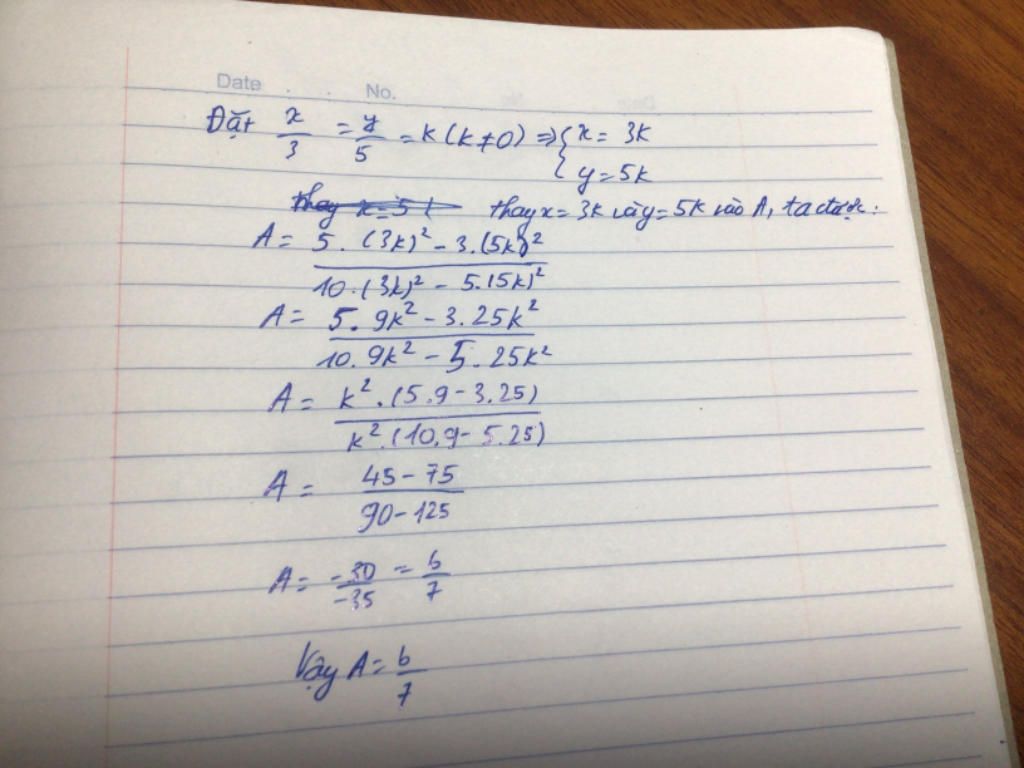 Date . . . No.
Đặt x/3 = y/5 = k (k≠0) => { x = 3k
{ y = 5k
thay x = 3k và y = 5k vào A, ta được:
A = (5.(3k)² - 3.(5k)²)/(10.(3k)² - 5.(5k)²)
A = (5.9k² - 3.25k²)/(10.9k² - 5.25k²)
A = (k².(5.9 - 3.25))/(k².(10.9 - 5.25))
A = (45 - 75)/(90 - 125)
A = -30/-35 = 6/7
Vậy A = 6/7